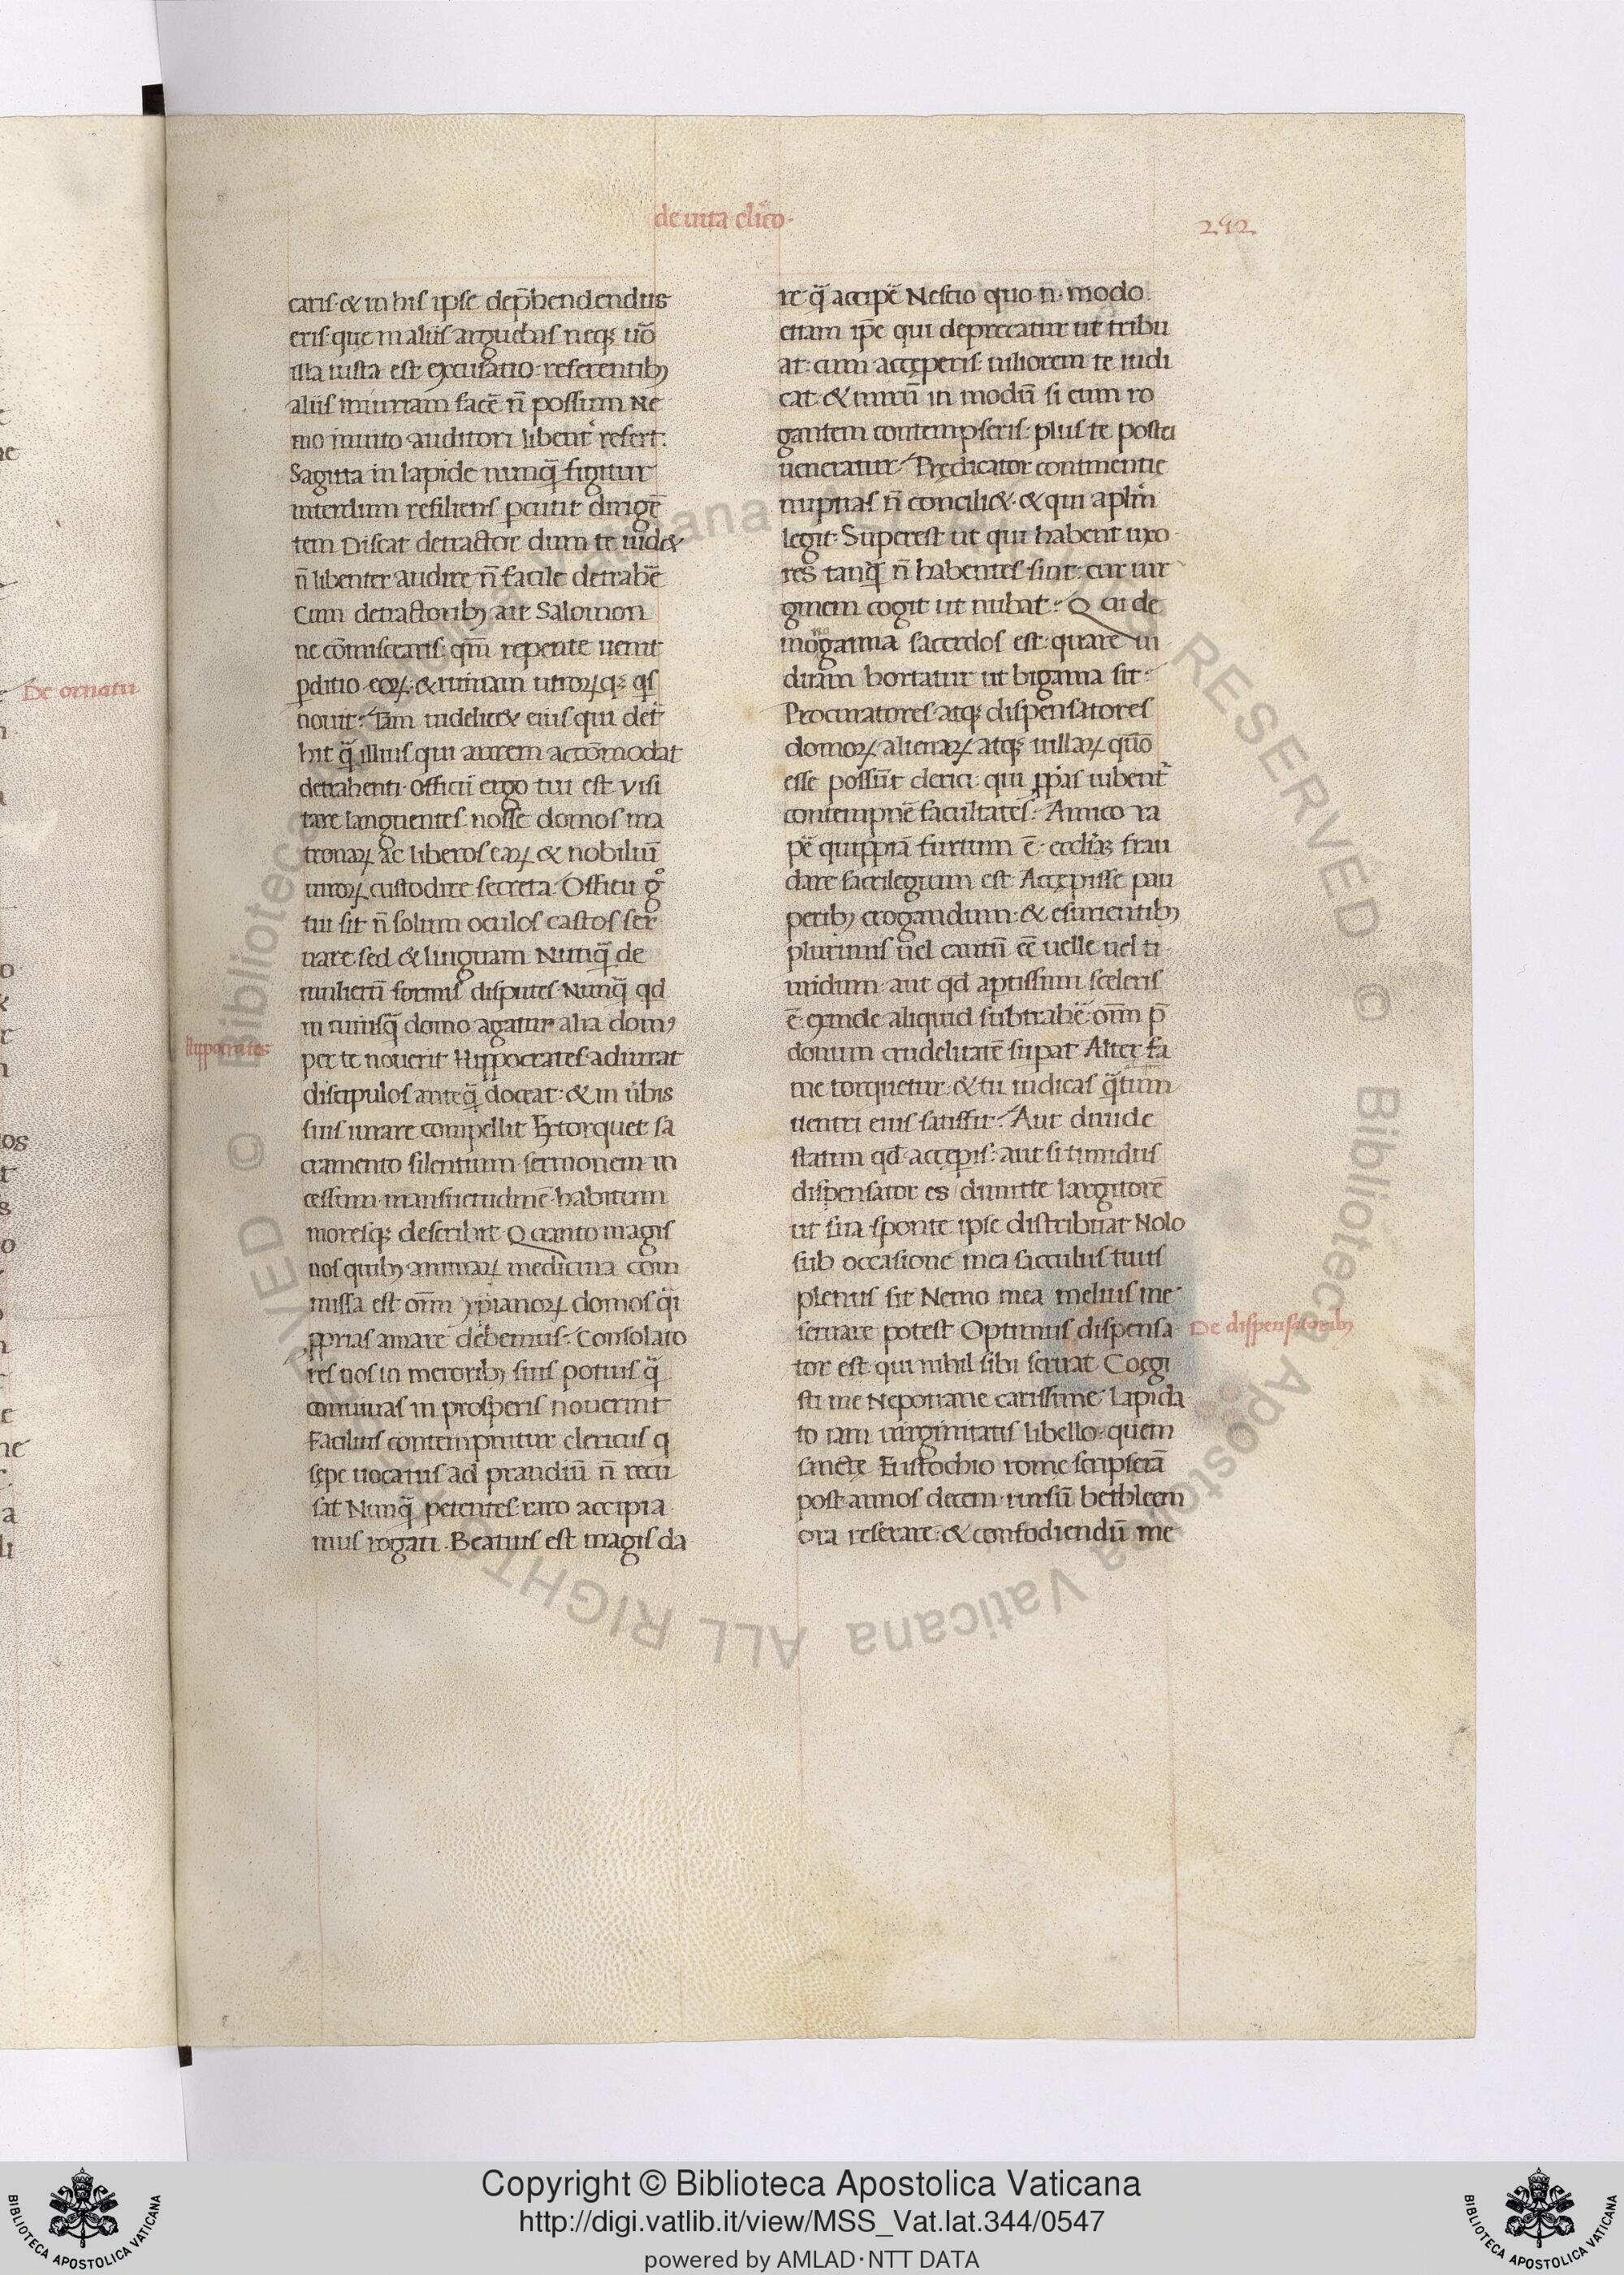 de uita cl̄ico
242
De ornatu
caris· & in his ipse dep̄hendendus
eris· que in aliis arguebas neq; uō
illa iusta est excusatio· referentib;
aliis iniuriam facē n̄ possum Ne
mo inuito auditori libent᷑ refert·
Sagitta in lapide nunq̄ figitur
interdum resiliens pcutit dirigē
tem Discat detractor dum te uid&
n̄ libenter audire n̄ facile detrahē
Cum detractorib; ait Salomon
ne cōmiscearis· qm̄ repente ueniet
pditio eoꝝ· & ruinam utroꝝq; q̄s
nouit· Tam uidelic& eius qui det᷑
hit q̄ illius qui aurem accōmodat
detrahenti· Officii ergo tui est visi
tare languentes nosse domos ma
tronaꝝ ac liberos eaꝝ & nobiliū
uiroꝝ custodire secreta· Officii gͦ
tui sit n̄ solum oculos castos ser
uare sed & linguam Nunq̄ de
mulierū formis disputes Nunq̄ qd
in cuiusq̄ domo agatur alia dom᷒
per te nouerit Hippocrates adiurat
discipulos anteq̄ doceat· & in ūbis
suis iurare compellit Extorquet sa
cramento silentium sermonem in
cessum mansuetudinē habitum
moresq; describit Quanto magis
nos quib; animaꝝ medicina com
missa est om̄m xp̄ianoꝝ domos q̄i
ꝓprias amare debemus· Consolato
res nos in merorib; suis potius q̄
conuiuas in prosperis nouerint
Facilius contempnitur clericus q
sępe uocatus ad prandiū n̄ recu
sat Nunq̄ petentes raro accipia
mus rogati· Beatius est magis da
Hippocrates
re q̄ accipē Nescio quo n̄ modo
etiam ip̄e qui deprecatur ut tribu
at· cum accęperis· uiliorem te iudi
cat· & mirū in modū si eum ro
gantem contempseris· plus te postea
ueneratur· Prędicator continentię
nuptias n̄ concili&· & qui aplm̄
legit· Superest ut qui habent uxo
res tanq̄ n̄ habentes sint· cur uir
ginem cogit ut nubat· Qui de
monogamia sacerdos est· quare ui
duam hortatur ut bigama sit·
Procuratores atq; dispensatores
domoꝝ alienaꝝ atq; uillaꝝ quō
esse possūt clerici· qui ꝓpas iubent᷑
contempnē facultates· Amico ra
pē quippiā furtum ē· eccl̄ias frau
dare sacrilegium est Accępisse pau
perib; erogandum· & esurientib;
plurimis uel cautū eē uelle uel ti
midum aut qd aptissimi sceleris
ē exinde aliquid subtrahē· om̄m p̄
donum crudelitatē supat Alter fa
me torquetur & tu iudicas q̄tum
uentri eius satissit· Aut diuide
statim qd accęperis· aut si timidus
dispensator es dimitte largitorē
ut sua sponte ipse distribuat Nolo
sub occasione mea sacculus tuus
plenus sit Nemo mea melius me
seruare potest Optimus dispensa
tor est qui nihil sibi seruat Coęgi
sti me Nepotiane carissime lapida
to iam uirginitatis libello quem
sanctę Eustochio rome scripserā
post annos decem rursū bethleem
ora reserare· & confodiendū me
De dispensatorib;
Copyright © Biblioteca Apostolica Vaticana
http://digi.vatlib.it/view/MSS_Vat.lat.344/0547
powered by AMLAD·NTT DATA
BIBLIOTECA APOSTOLICA VATICANA
BIBLIOTECA APOSTOLICA VATICANA